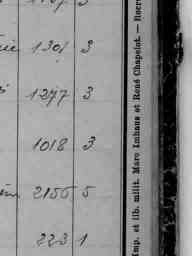 1301 3
1277 3
1018 3
2155 5
223 1
Imp. et lib. milit. Marc Imhaus et René Chapelot. —